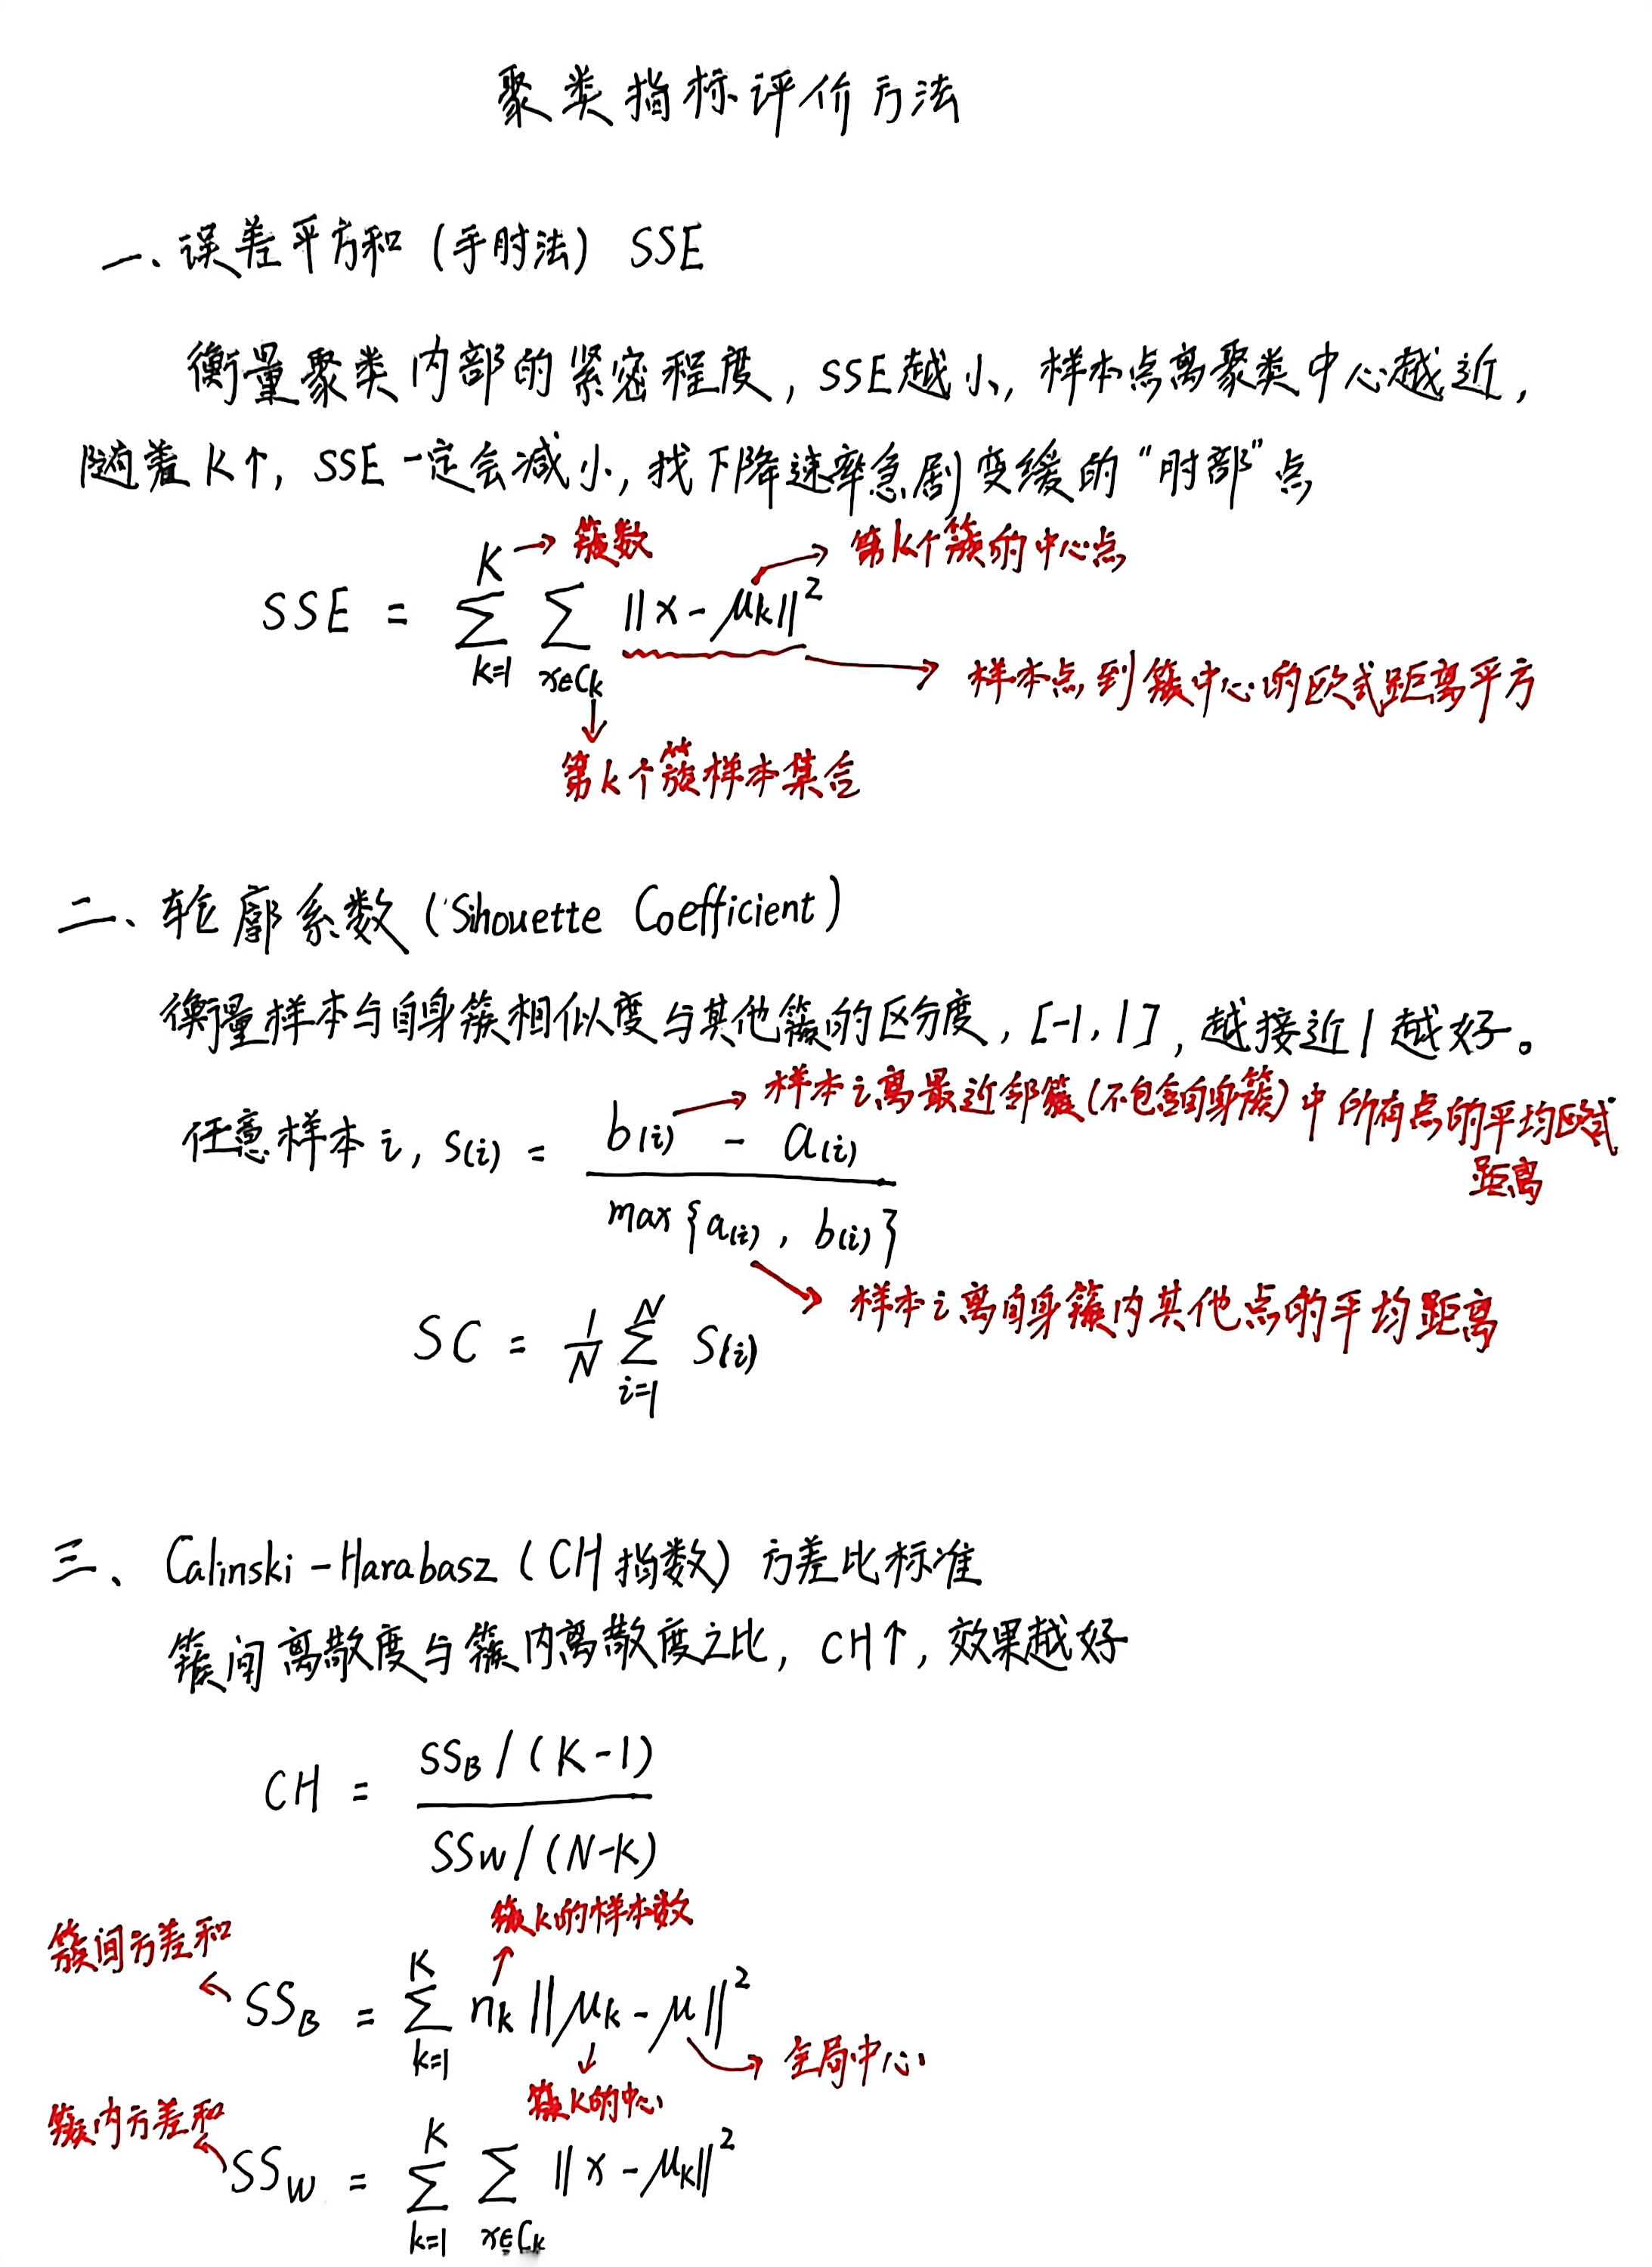 聚类指标评价方法
一、误差平方和 (手肘法) SSE
衡量聚类内部的紧密程度, SSE越小, 样本点离聚类中心越近,
随着K↑, SSE一定会减小, 找下降速率急剧变缓的“肘部”点
K → 簇数
第k个簇的中心点
SSE = ∑_{k=1}^{K} ∑_{x∈C_k} ||x-μ_k||²
样本点到簇中心的欧式距离平方
第k个簇样本集合
二、轮廓系数 (Sihouette Coefficient)
衡量样本与自身簇相似度与其他簇的区分度, [-1, 1], 越接近1越好。
样本i离最近邻簇(不包含自身簇)中所有点的平均欧式
距离
任意样本i, S(i) = \frac{b(i) - a(i)}{max{a(i), b(i)}}
样本i离自身簇内其他点的平均距离
SC = \frac{1}{N} ∑_{i=1}^{N} S(i)
三、Calinski-Harabasz (CH指数) 方差比标准
簇间离散度与簇内离散度之比, CH↑, 效果越好
CH = \frac{SS_B/(K-1)}{SS_W/(N-K)}
簇k的样本数
簇间方差和
SS_B = ∑_{k=1}^{K} n_k ||μ_k-μ||²
全局中心
簇k的中心
簇内方差和
SS_W = ∑_{k=1}^{K} ∑_{x∈C_k} ||x-μ_k||²